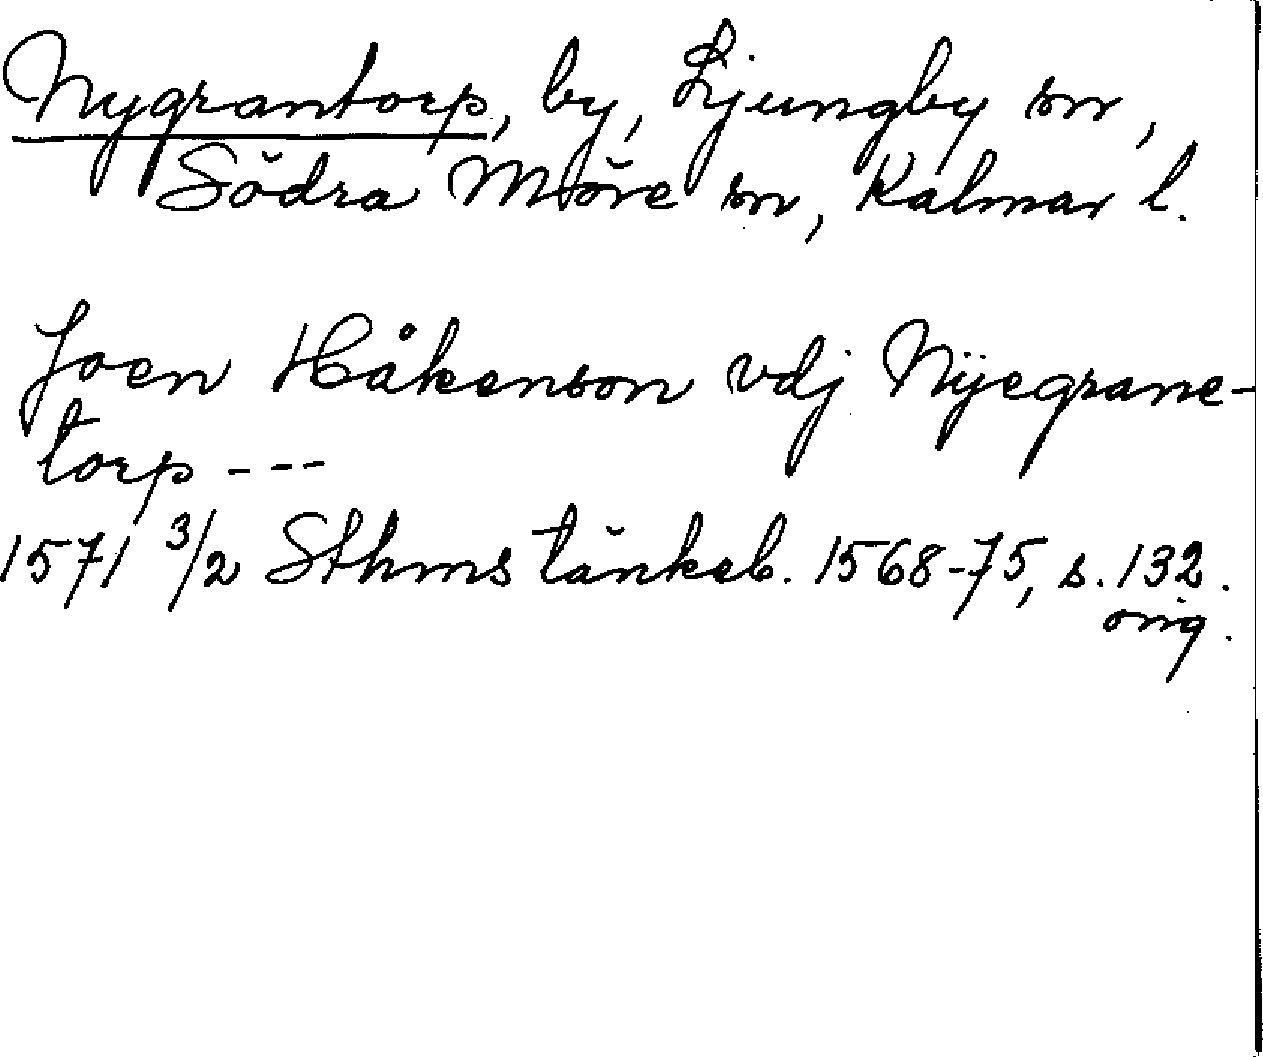 Nygrantorp, by, Ljungby sn,
Södra Möre sn, Kalmar l.
Joen Håkenson vdj Nÿegrane-
torp ---
1571 3/2 Sthms tänkeb. 1568-75, s. 132.
orig.